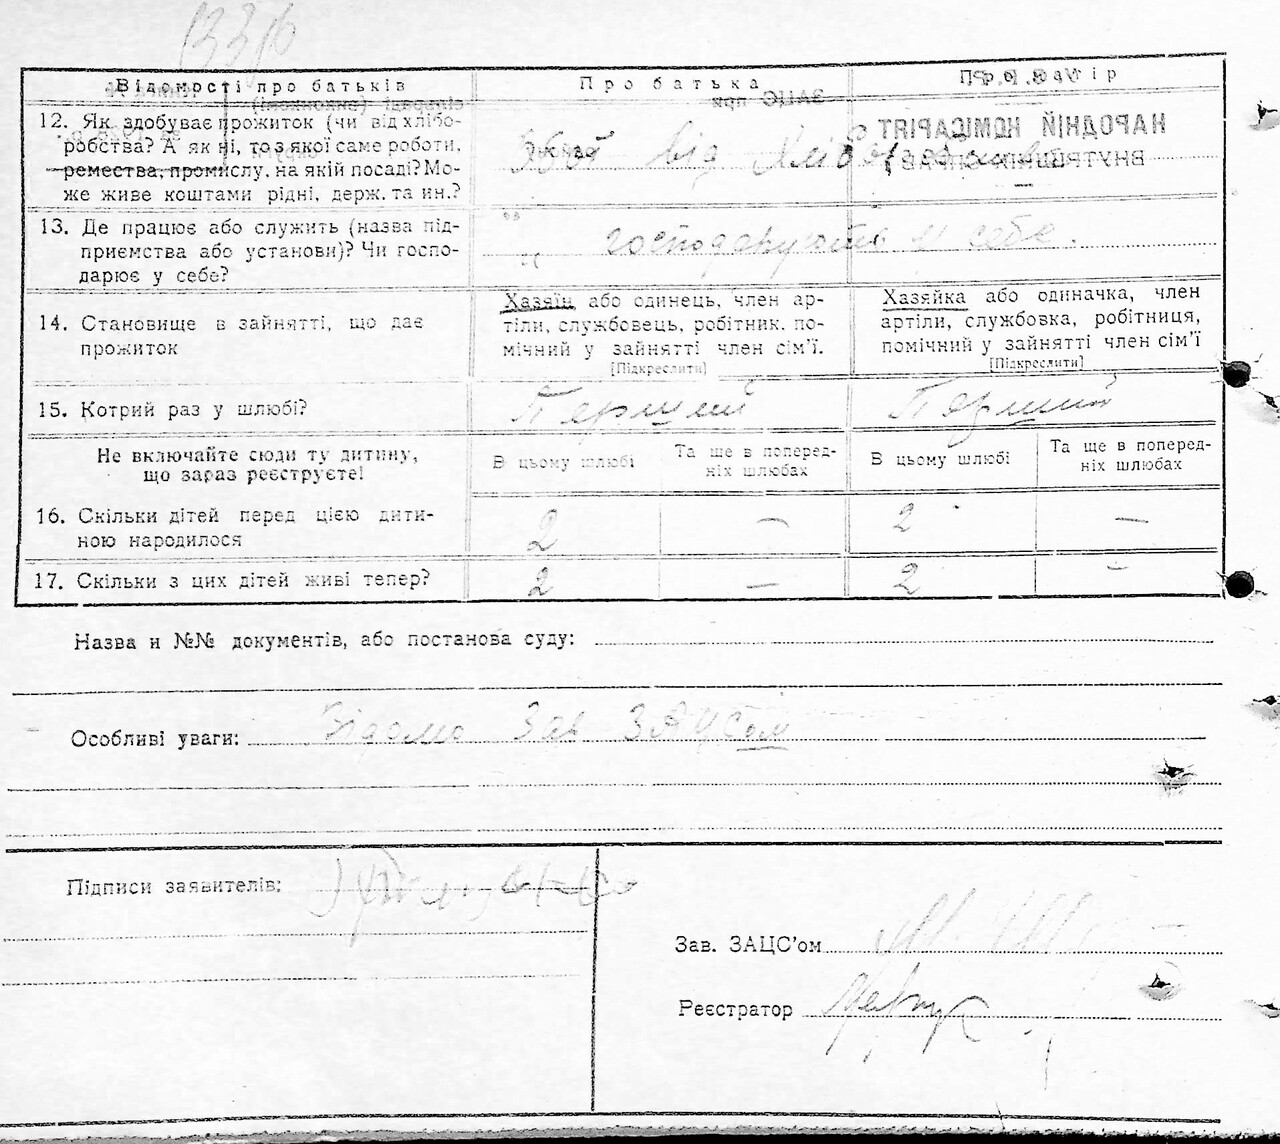 1336
Відомості про батьків
Про батька
Про матір
12. Як здобуває прожиток (чи від хлібо-
робства? А як ні, то з якої саме роботи,
ремества, промислу, на якій посаді? Мо-
же живе коштами рідні, держ. та ин.?
від хліборобства
13. Де працює або служить (назва під-
приємства або установи)? Чи госпо-
дарює у себе?
господарюють у себе.
14. Становище в зайнятті, що дає
прожиток
Хазяїн або одинець, член ар-
тіли, службовець, робітник, по-
мічний у зайнятті член сім'ї.
[Підкреслити]
Хазяйка або одиначка, член
артіли, службовка, робітниця,
помічний у зайнятті член сім'ї
[Підкреслити]
15. Котрий раз у шлюбі?
Перший
Перший
Не включайте сюди ту дитину,
що зараз реєструєте!
В цьому шлюбі
Та ще в поперед-
ніх шлюбах
В цьому шлюбі
Та ще в поперед-
ніх шлюбах
16. Скільки дітей перед цією дити-
ною народилося
2 — 2 —
17. Скільки з цих дітей живі тепер?
2 — 2 -
Назва и №№ документів, або постанова суду:
Особливі уваги: Відомо Зав ЗАЦСом
Підписи заявителів:
Зав. ЗАЦС'ом
Реєстратор
НАРОДНІЙ КОМІСАРІЯТ
ВНУТРІШНІХ СПРАВ